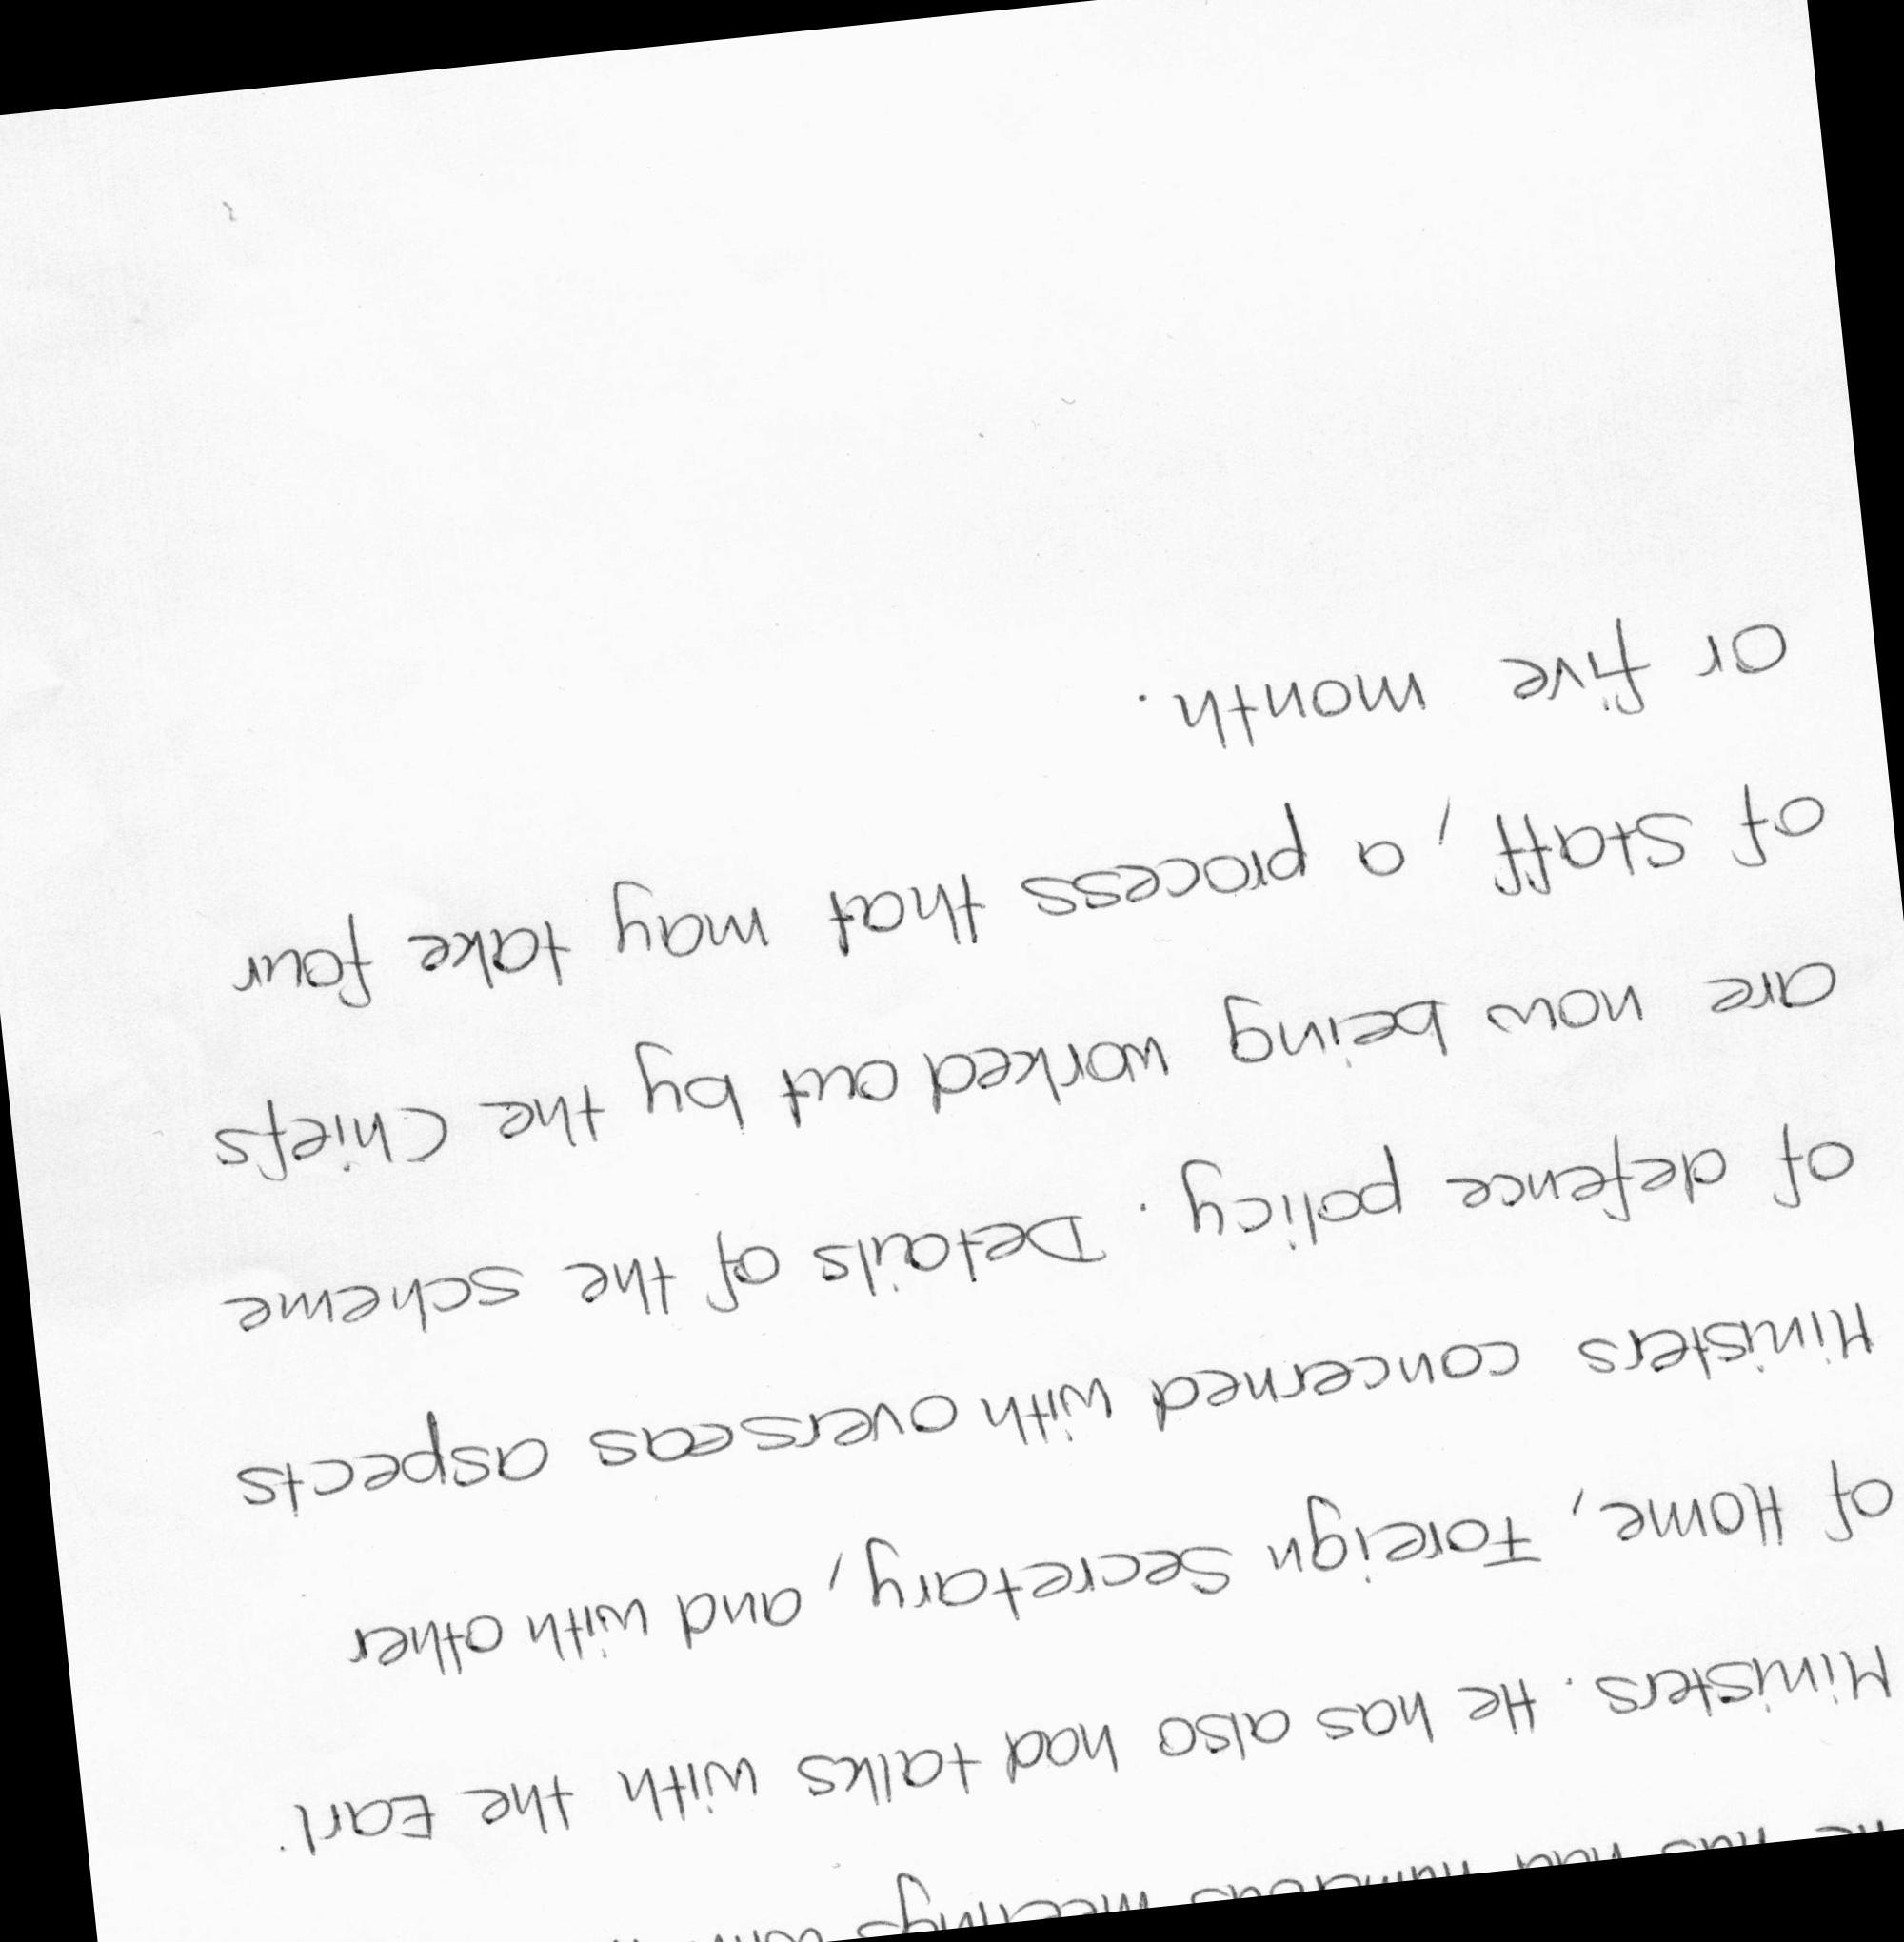 he has had numerous meetings with
Ministers. He has also had talks with the Earl
of Home, Foreign Secretary, and with other
Ministers concerned with overseas aspects
of defence policy. Details of the scheme
are now being worked out by the Chiefs
of Staff, a process that may take four
or five month.